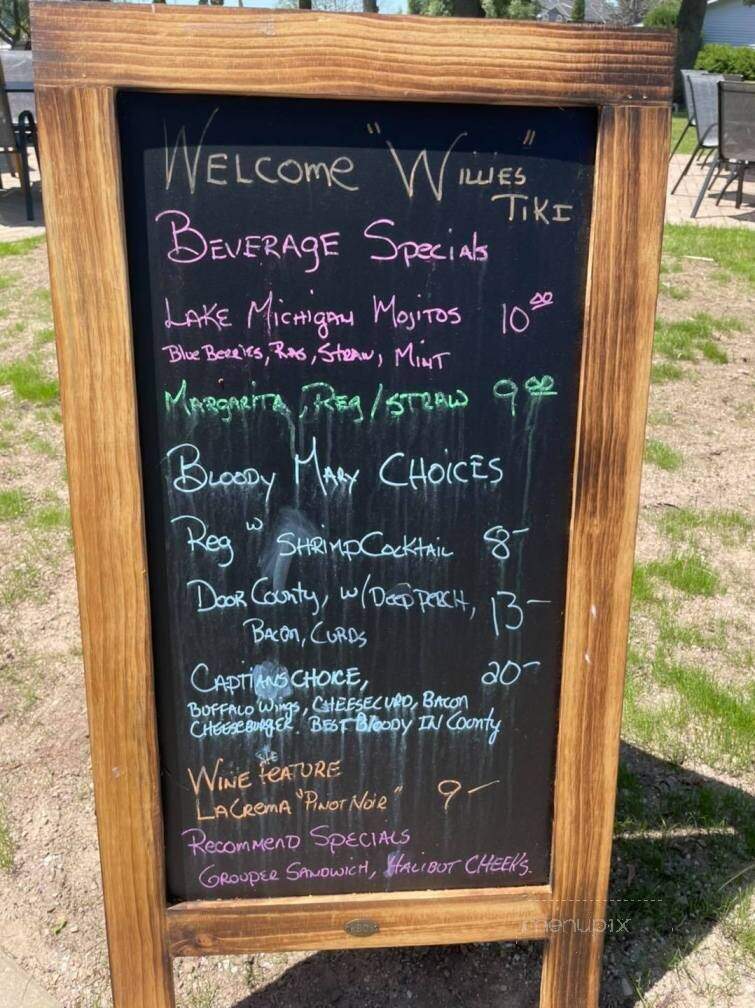 WELCOME "WILLIES"
TIKI
BEVERAGE Specials
LAKE MICHIGAN MOJITOS 10.00
Blue Berries, RAS, STRAW, MINT
MARGARITA, REG/STRAW 9.00
BLOODY MARY CHOICES
Reg W SHRIMP COCKTAIL 8-
DOOR COUNTY, W/DEEP PERCH, 13-
BACON, CURDS
CAPTIANS CHOICE, 20-
BUFFALO WINGS, CHEESECURD, BACON
CHEESEBURGER. BEST BLOODY IN COUNTY
WINE FEATURE
LA CREMA "PINOT NOIR" 9-
RECOMMEND SPECIALS
GROUPER SANDWICH, HALIBUT CHEEKS.
menupix